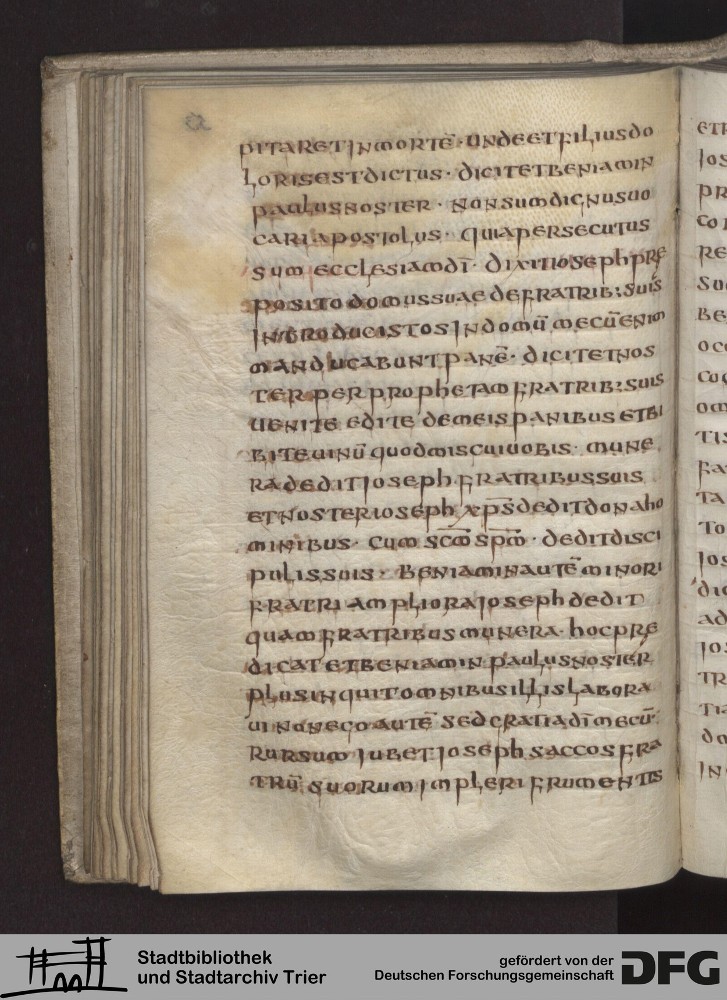 pitaretinmortē· undeetfiliusdo
lorisestdictus· dicitetbeniamin
paulusnoster· nonsumdignusuo
cariapostolus· quiapersecutus
sum ecclesiamdī· dixitiosephpre
posito domussuae defratrib; suis
introducistosindomū mecūenim
manducabuntpanē· dicitetnos
ter per prophetam fratrib; suis
uenite edite demeispanibus etbi
biteuinū quodmiscuiuobis· mune
radeditioseph fratribussuis
etnosterioseph xp̄s deditdonaho
minibus· cum sc̄m sp̄m· deditdisci
pulissuis· beniaminautēminori
fratri amplioraioseph dedit
quam fratribus munera· hocpre
dicatetbeniamin paulusnoster
plusinquitomnibusillislabora
ui nonegoautē sedgratiadīmecū·
rursum iubetioseph saccosfra
trū suorum impleri frumentis
etr
ios
pr
co
re
su
be
oc
cu
om
tis
fa
ta
to
ios
dic
ad
ios
tr
tia
do
in
Stadtbibliothek
und Stadtarchiv Trier
gefördert von der
Deutschen Forschungsgemeinschaft
DFG